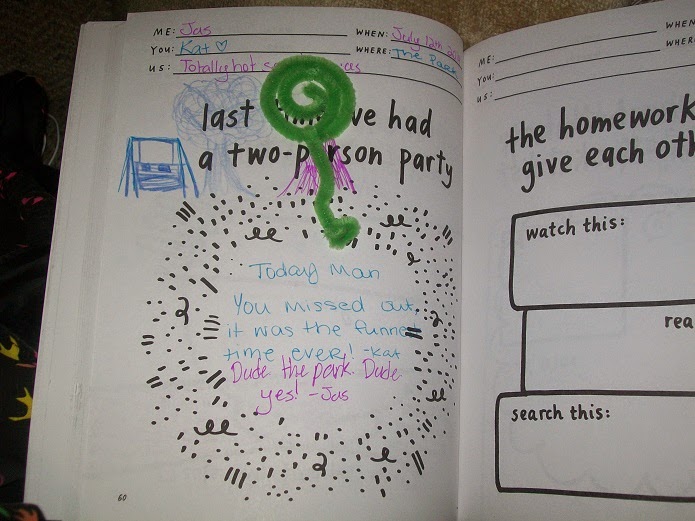 ME: Jas
WHEN: July 12th
YOU: Kat ♡
WHERE: The Park
US: Totally hot
last ve had
a two-person party
Today Man
You missed out,
it was the funnest
time ever! -Kat
Dude the park. Dude
yes! -Jas
60
ME:
WHEN
YOU:
WHER
US:
the homework
give each oth
watch this:
rea
search this: